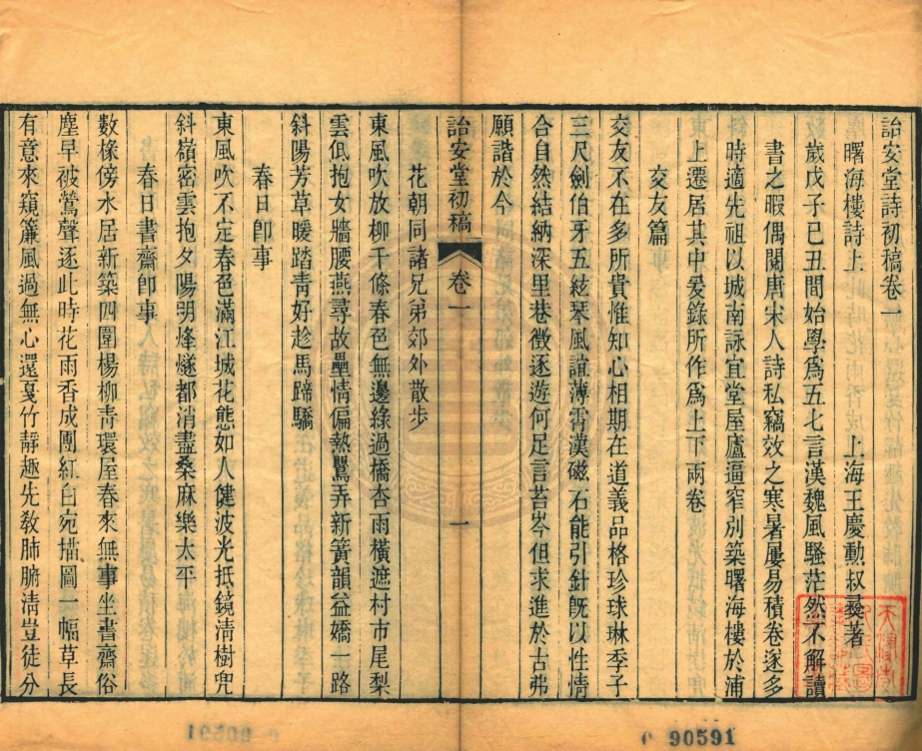 詒安堂詩初稿卷一
曙海樓詩上 上海王慶勳叔彝著
歲戊子己丑間始學爲五七言漢魏風騷茫然不解讀
書之暇偶閱唐宋人詩私竊效之寒暑屢易積卷遂多
時適先祖以城南詠宜堂屋廬逼窄別築曙海樓於浦
東上遷居其中爰錄所作爲上下兩卷
交友篇
交友不在多所貴惟知心相期在道義品格珍球琳季子
三尺劍伯牙五絃琴風誼薄霄漢磁石能引針旣以性情
合自然結納深里巷徵逐遊何足言苔岑但求進於古弗
願諧於今
詒安堂初稿 卷一 一
花朝同諸兄弟郊外散步
東風吹放柳千條春色無邊綠過橋杏雨橫遮村市尾梨
雲低抱女牆腰燕尋故壘情偏熱鶯弄新簧韻益嬌一路
斜陽芳草暖踏青好趁馬蹄驕
春日卽事
東風吹不定春色滿江城花態如人健波光抵鏡清樹兜
斜嶺密雲抱夕陽明烽燧都消盡桑麻樂太平
春日書齋卽事
數椽傍水居新築四圍楊柳青環屋春來無事坐書齋俗
塵早被鶯聲逐此時花雨香成團紅白宛描圖一幅草長
有意來窺簾風過無心還戛竹靜趣先敎肺腑清豈徒分
90591
90591